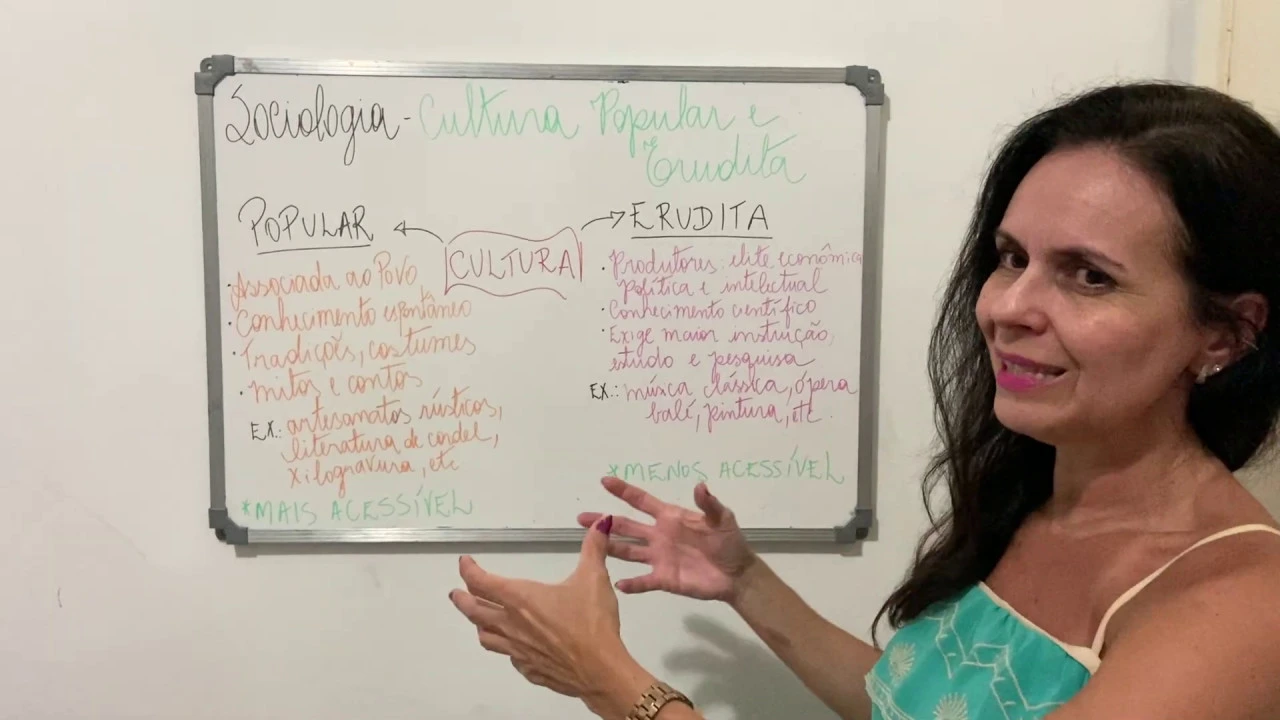 Sociologia - Cultura Popular e
Erudita
POPULAR
CULTURA
ERUDITA
· Associada ao Povo
· Conhecimento espontâneo
· Tradições, costumes
· mitos e contos
EX.: artesanatos rústicos,
literatura de cordel,
xilogravura, etc
*MAIS ACESSÍVEL
· Produtores: elite econômica
política e intelectual
· Conhecimento científico
· Exige maior instrução,
estudo e pesquisa
EX.: música clássica, ópera
balé, pintura, etc.
*MENOS ACESSÍVEL